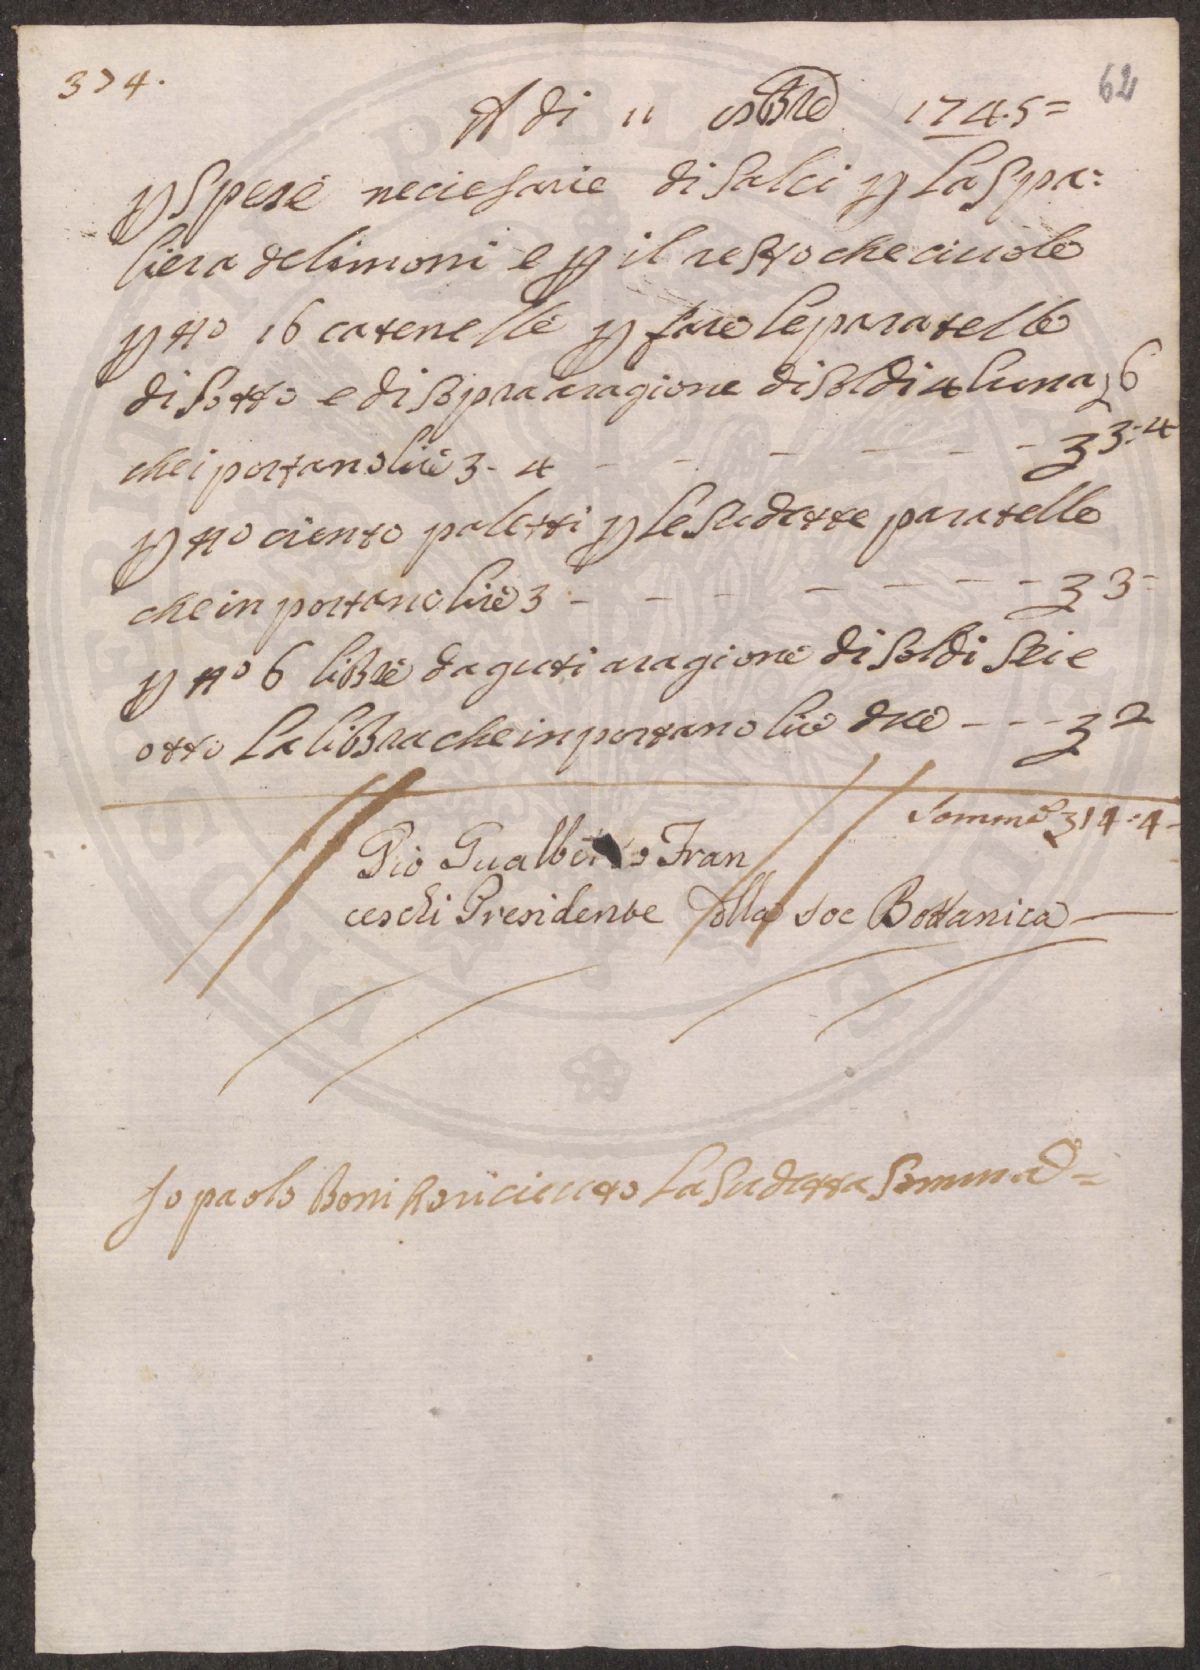 374.
62
A di 11 9Bre 1745=
p spese neciesarie di salci p la spa:
liera de limoni e p il resto che ci vole
p no 16 catenelle p fare le paratelle
di sotto e di sopra a ragione di soldi 4 l'una 36
che i portano lire 3 - 4 - - - - - - - 3 3:4
p no ciento paletti p le sudette paratelle
che in portano lire 3 - - - - - - - - 3 3-
p no 6 libre d aguti a ragione di soldi sei e
otto la libra che in portano lire due - - - 3 2
Somma 3 14:4-
Pio Gualberto Fran
ceschi Presidente della Soc Bottanica
Jo paolo Boni Ho ricievuto la sudetta somma=
PROSPERITATI PVBLICAE